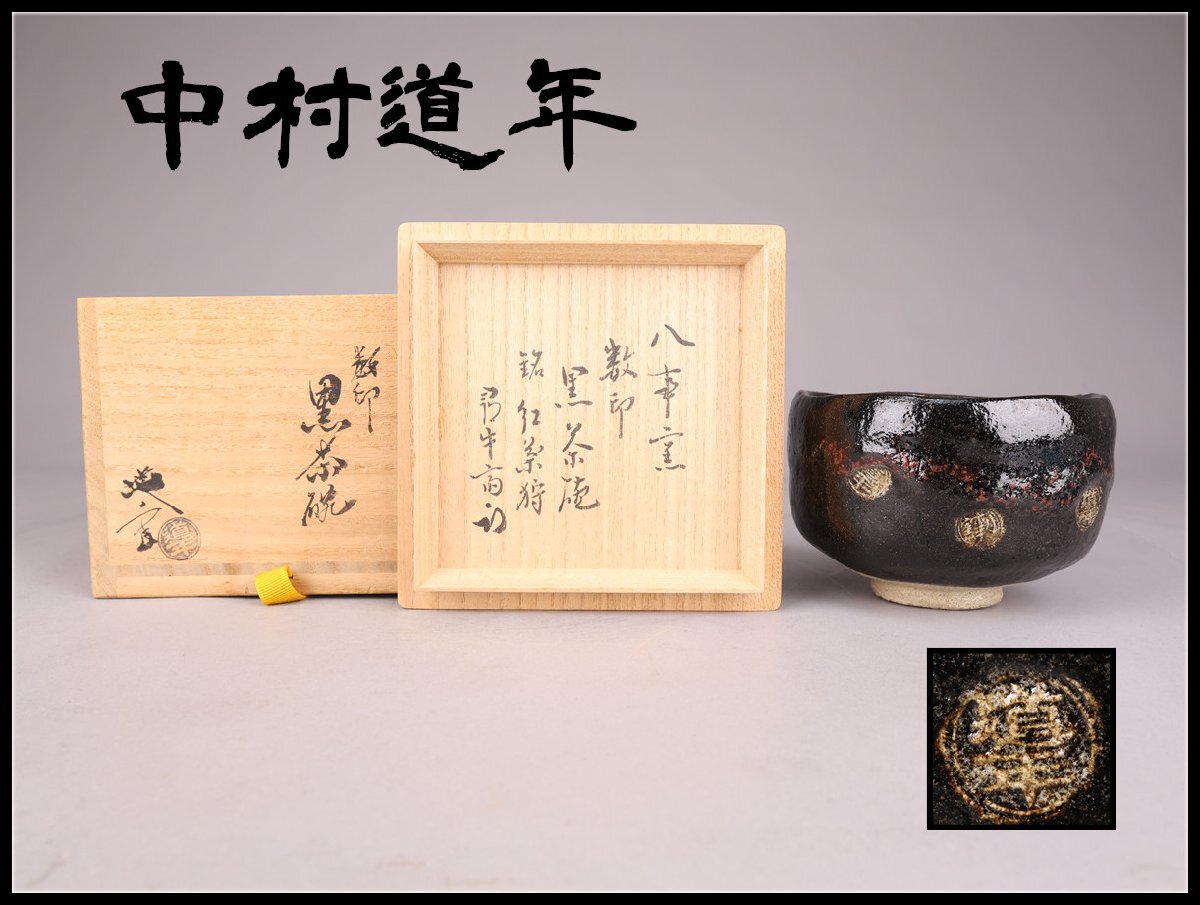 中村道年
八事窯
数印
黒茶碗
銘 紅葉狩
数印
黒茶碗
道年